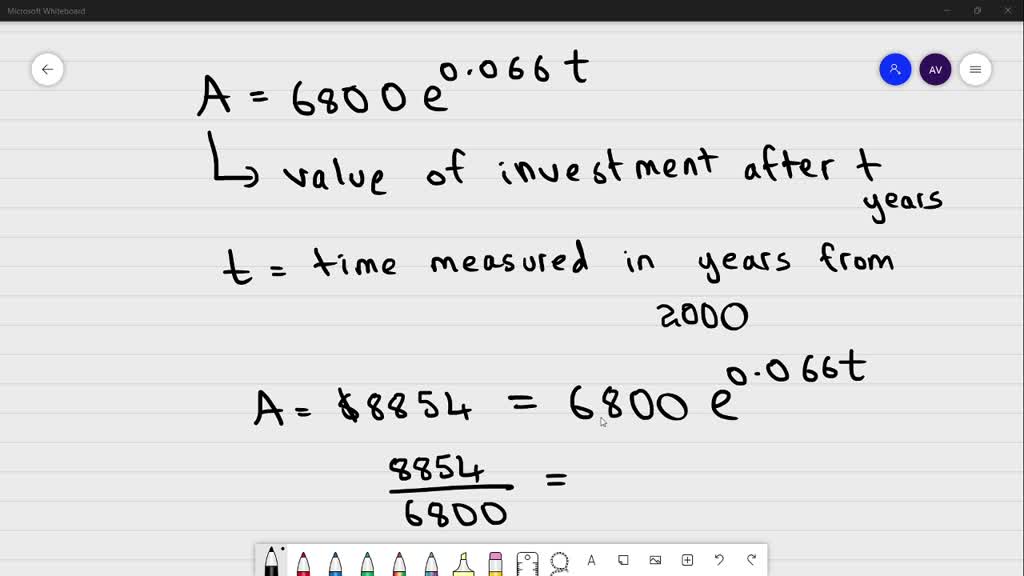 Microsoft Whiteboard
AV
A = 6800 e^0.066 t
↳ value of investment after t
years
t = time measured in years from
2000
A = $8854 = 6800 e^0.066t
8854
6800 =
A